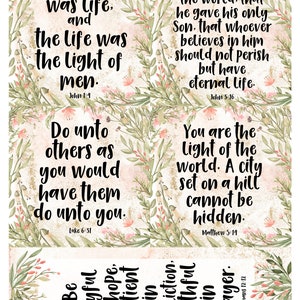 was life,
and
the life was
the light of
men.
John 1:4
the world, that
he gave his only
Son, that whoever
believes in him
should not perish
but have
eternal life.
John 3:16
Do unto
others as
you would
have them
do unto you.
Luke 6:31
You are the
light of the
world. A city
set on a hill
cannot be
hidden.
Matthew 5:14
Be
hope,
in
in